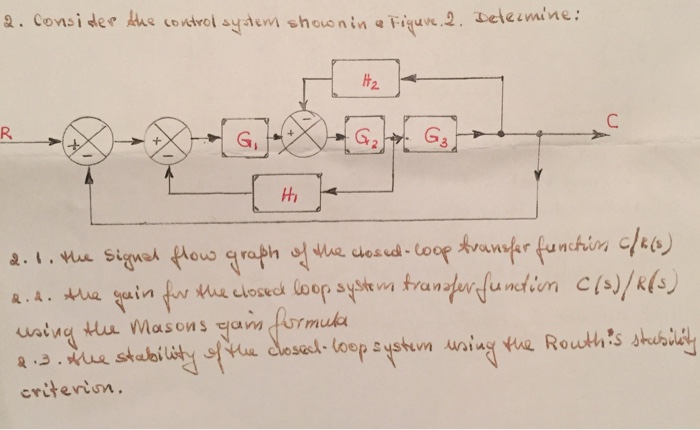 2. Consider the control system shown in a Figure.2. Determine:
H2
R
+
−
+
−
G1
+
−
G2
G3
C
H1
2.1. the Signal flow graph of the closed-loop transfer function C/R(s)
2.2. the gain for the closed loop system transfer function C(s)/R(s)
using the Masons gain formula
2.3. the stability of the closed-loop system using the Routh's stability
criterion.